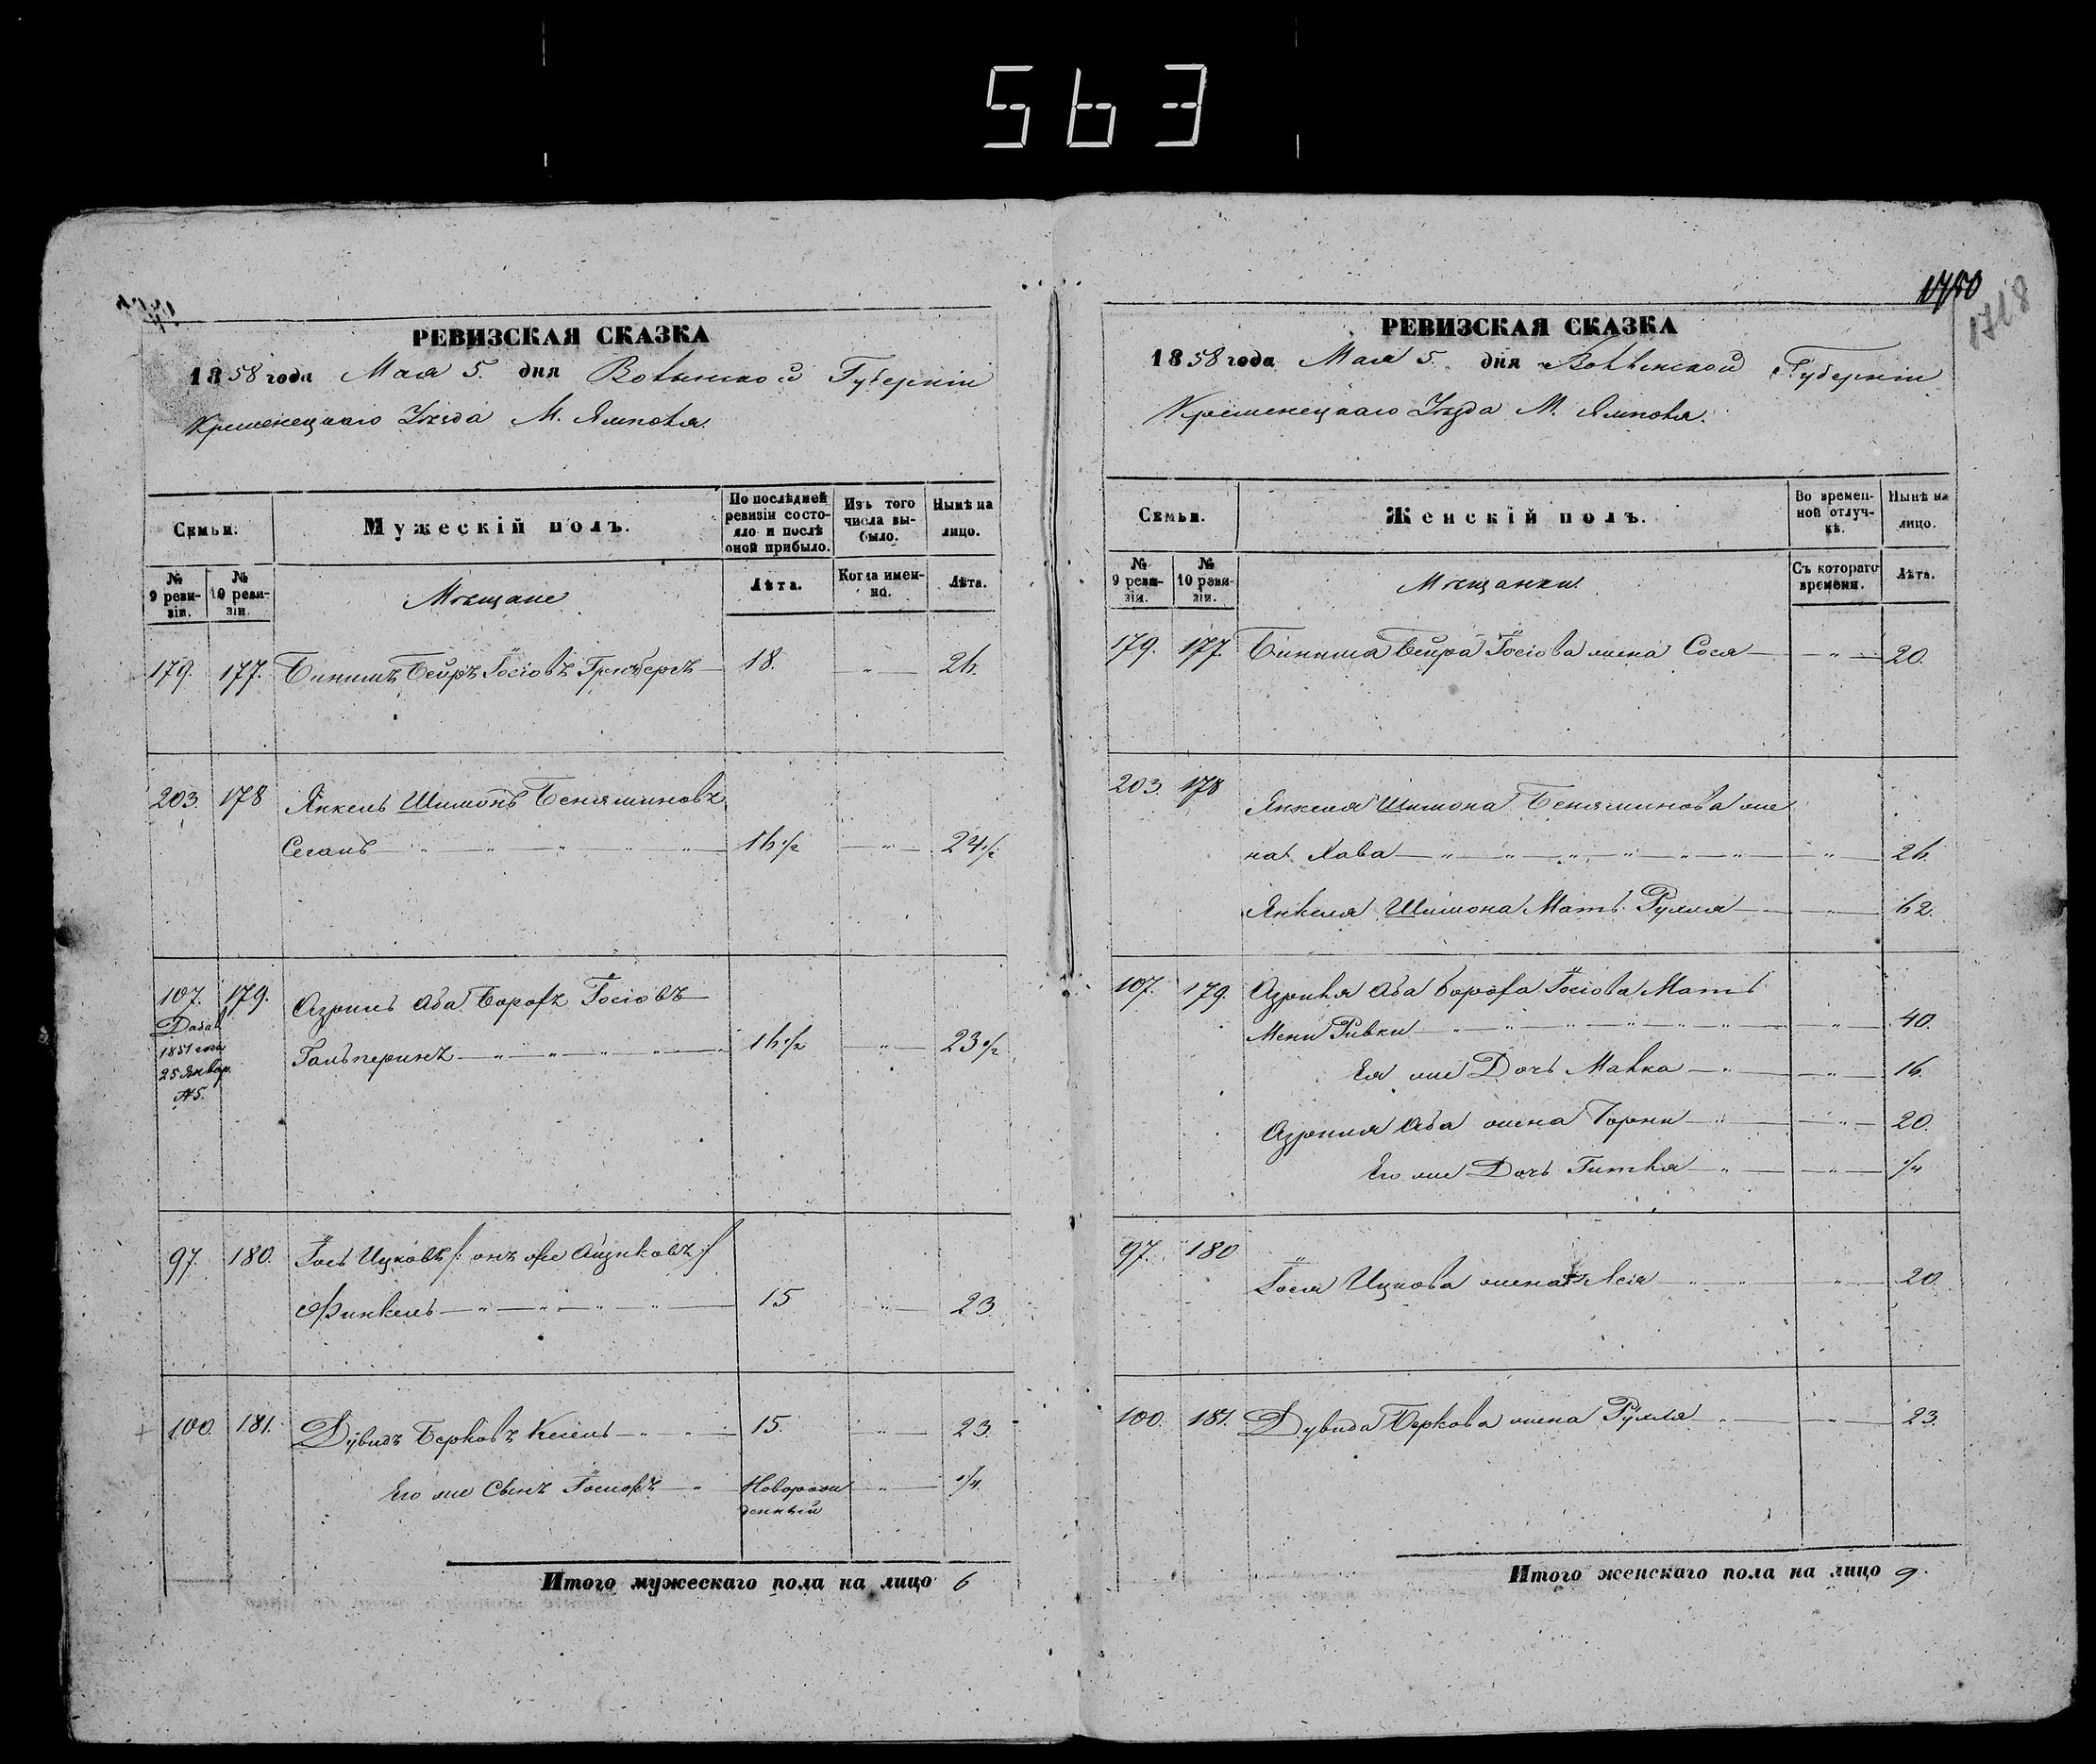 563
РЕВИЗСКАЯ СКАЗКА
1858 года Мая 5. дня Волынской Губерніи
Кременецкаго Уѣзда М. Ямполя.
Семьи.
Мужескій полъ.
По послѣдней ревизіи состояло и послѣ оной прибыло.
Изъ того числа выбыло.
Нынѣ на лицо.
№ 9 ревизіи.
№ 10 ревизіи.
Мѣщане
Лѣта.
Когда именно.
Лѣта.
179. 177. Бинишъ Бейръ Іосіовъ Гринбергъ 18. 26.
203. 178 Янкель Шимонъ Беняминовъ
Сеганъ 16 1/2 24 1/2
107. 179. Азриль Аба Борохъ Іосіовъ
Добав.
1851 года
25 Январ.
№5.
Гальперинъ 16 1/2 23 1/2
97. 180. Іось Ицковъ /: онъ же Айзиковъ :/
Финкель 15 23.
100. 181. Дувидъ Берковъ Кесель 15. 23.
Его же Сынъ Іосифъ Новорожденный 1/4.
Итого мужескаго пола на лицо 6
1750
1718
РЕВИЗСКАЯ СКАЗКА
1858 года Мая 5. дня Волынской Губерніи
Кременецкаго Уѣзда М. Ямполя.
Семьи.
Женскій полъ.
Во временной отлучкѣ.
Нынѣ на лицо.
№ 9 ревизіи.
№ 10 ревизіи.
Мѣщанки.
Съ котораго времени.
Лѣта.
179. 177. Биниша Бейра Іосіова жена Сося 20.
203. 178 Янкеля Шимона Беняминова же
на Хава 26.
Янкеля Шимона Мать Рухля 62.
107. 179. Азриля Аба Бороха Іосіова Мать
Мени Ривки 40.
Ея же Дочь Малка 16.
Азриля Аба жена 20.
Его же Дочь Гитля 1/4
97. 180 Іося Ицкова жена Лея 20.
100. 181. Дувида Беркова жена Рухля 23.
Итого женскаго пола на лицо 9.